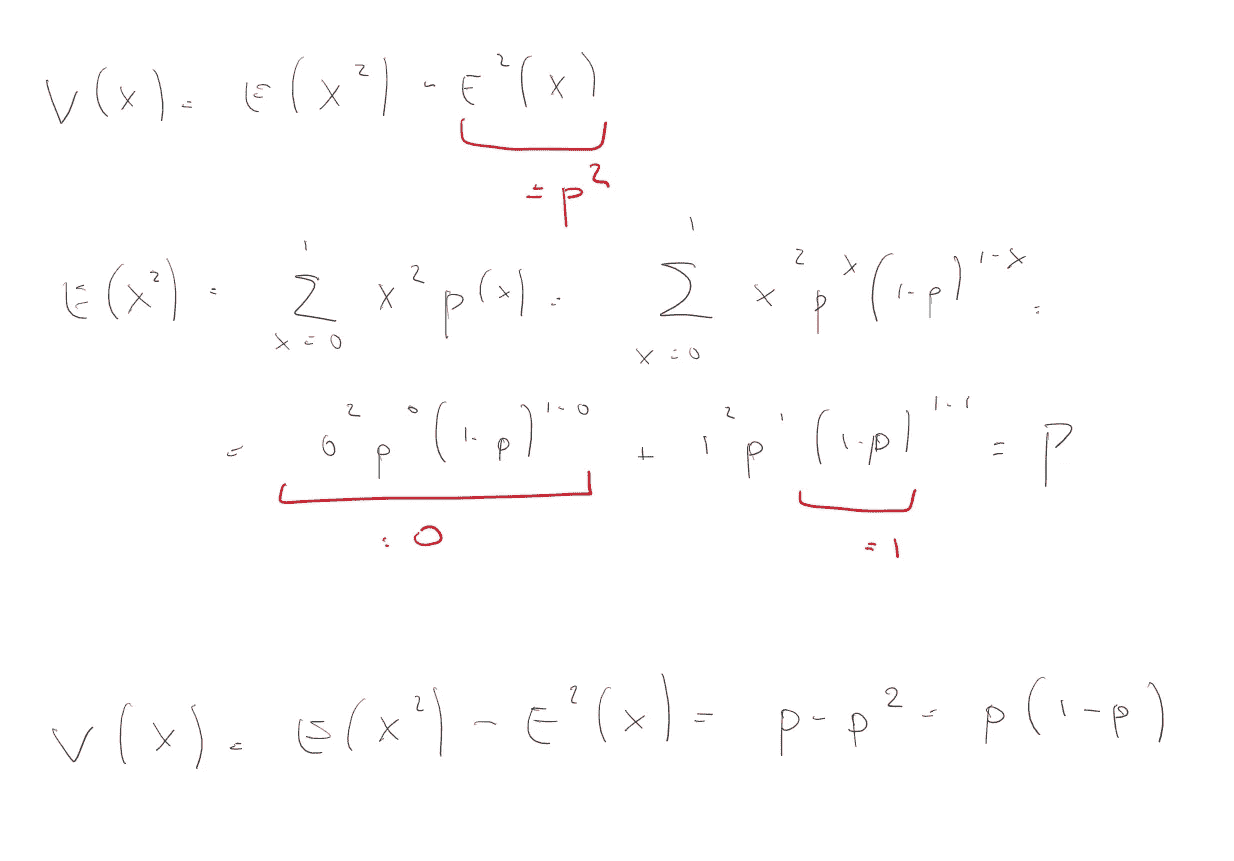 V(x) = E(x²) - E²(x)
= p²
E(x²) = ∑_{x=0}^{1} x² p(x) = ∑_{x=0}^{1} x² p^x (1-p)^{1-x} =
= 0² p⁰ (1-p)^{1-0} + 1² p¹ (1-p)^{1-1} = P
= 0 = 1
V(x) = E(x²) - E²(x) = p - p² = p(1-p)